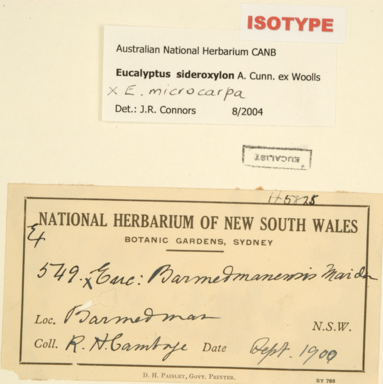 ISOTYPE
Australian National Herbarium CANB
Eucalyptus sideroxylon A. Cunn. ex Woolls
x E. microcarpa
Det.: J.R. Connors 8/2004
EUCALIST
NATIONAL HERBARIUM OF NEW SOUTH WALES
BOTANIC GARDENS, SYDNEY
549. x Euc: Barmedmanensis Maiden
Loc. Barmedman
N.S.W.
Coll. R. H. Cambage Date Sept. 1900
D. H. PAISLEY, GOVT. PRINTER.
SY 786